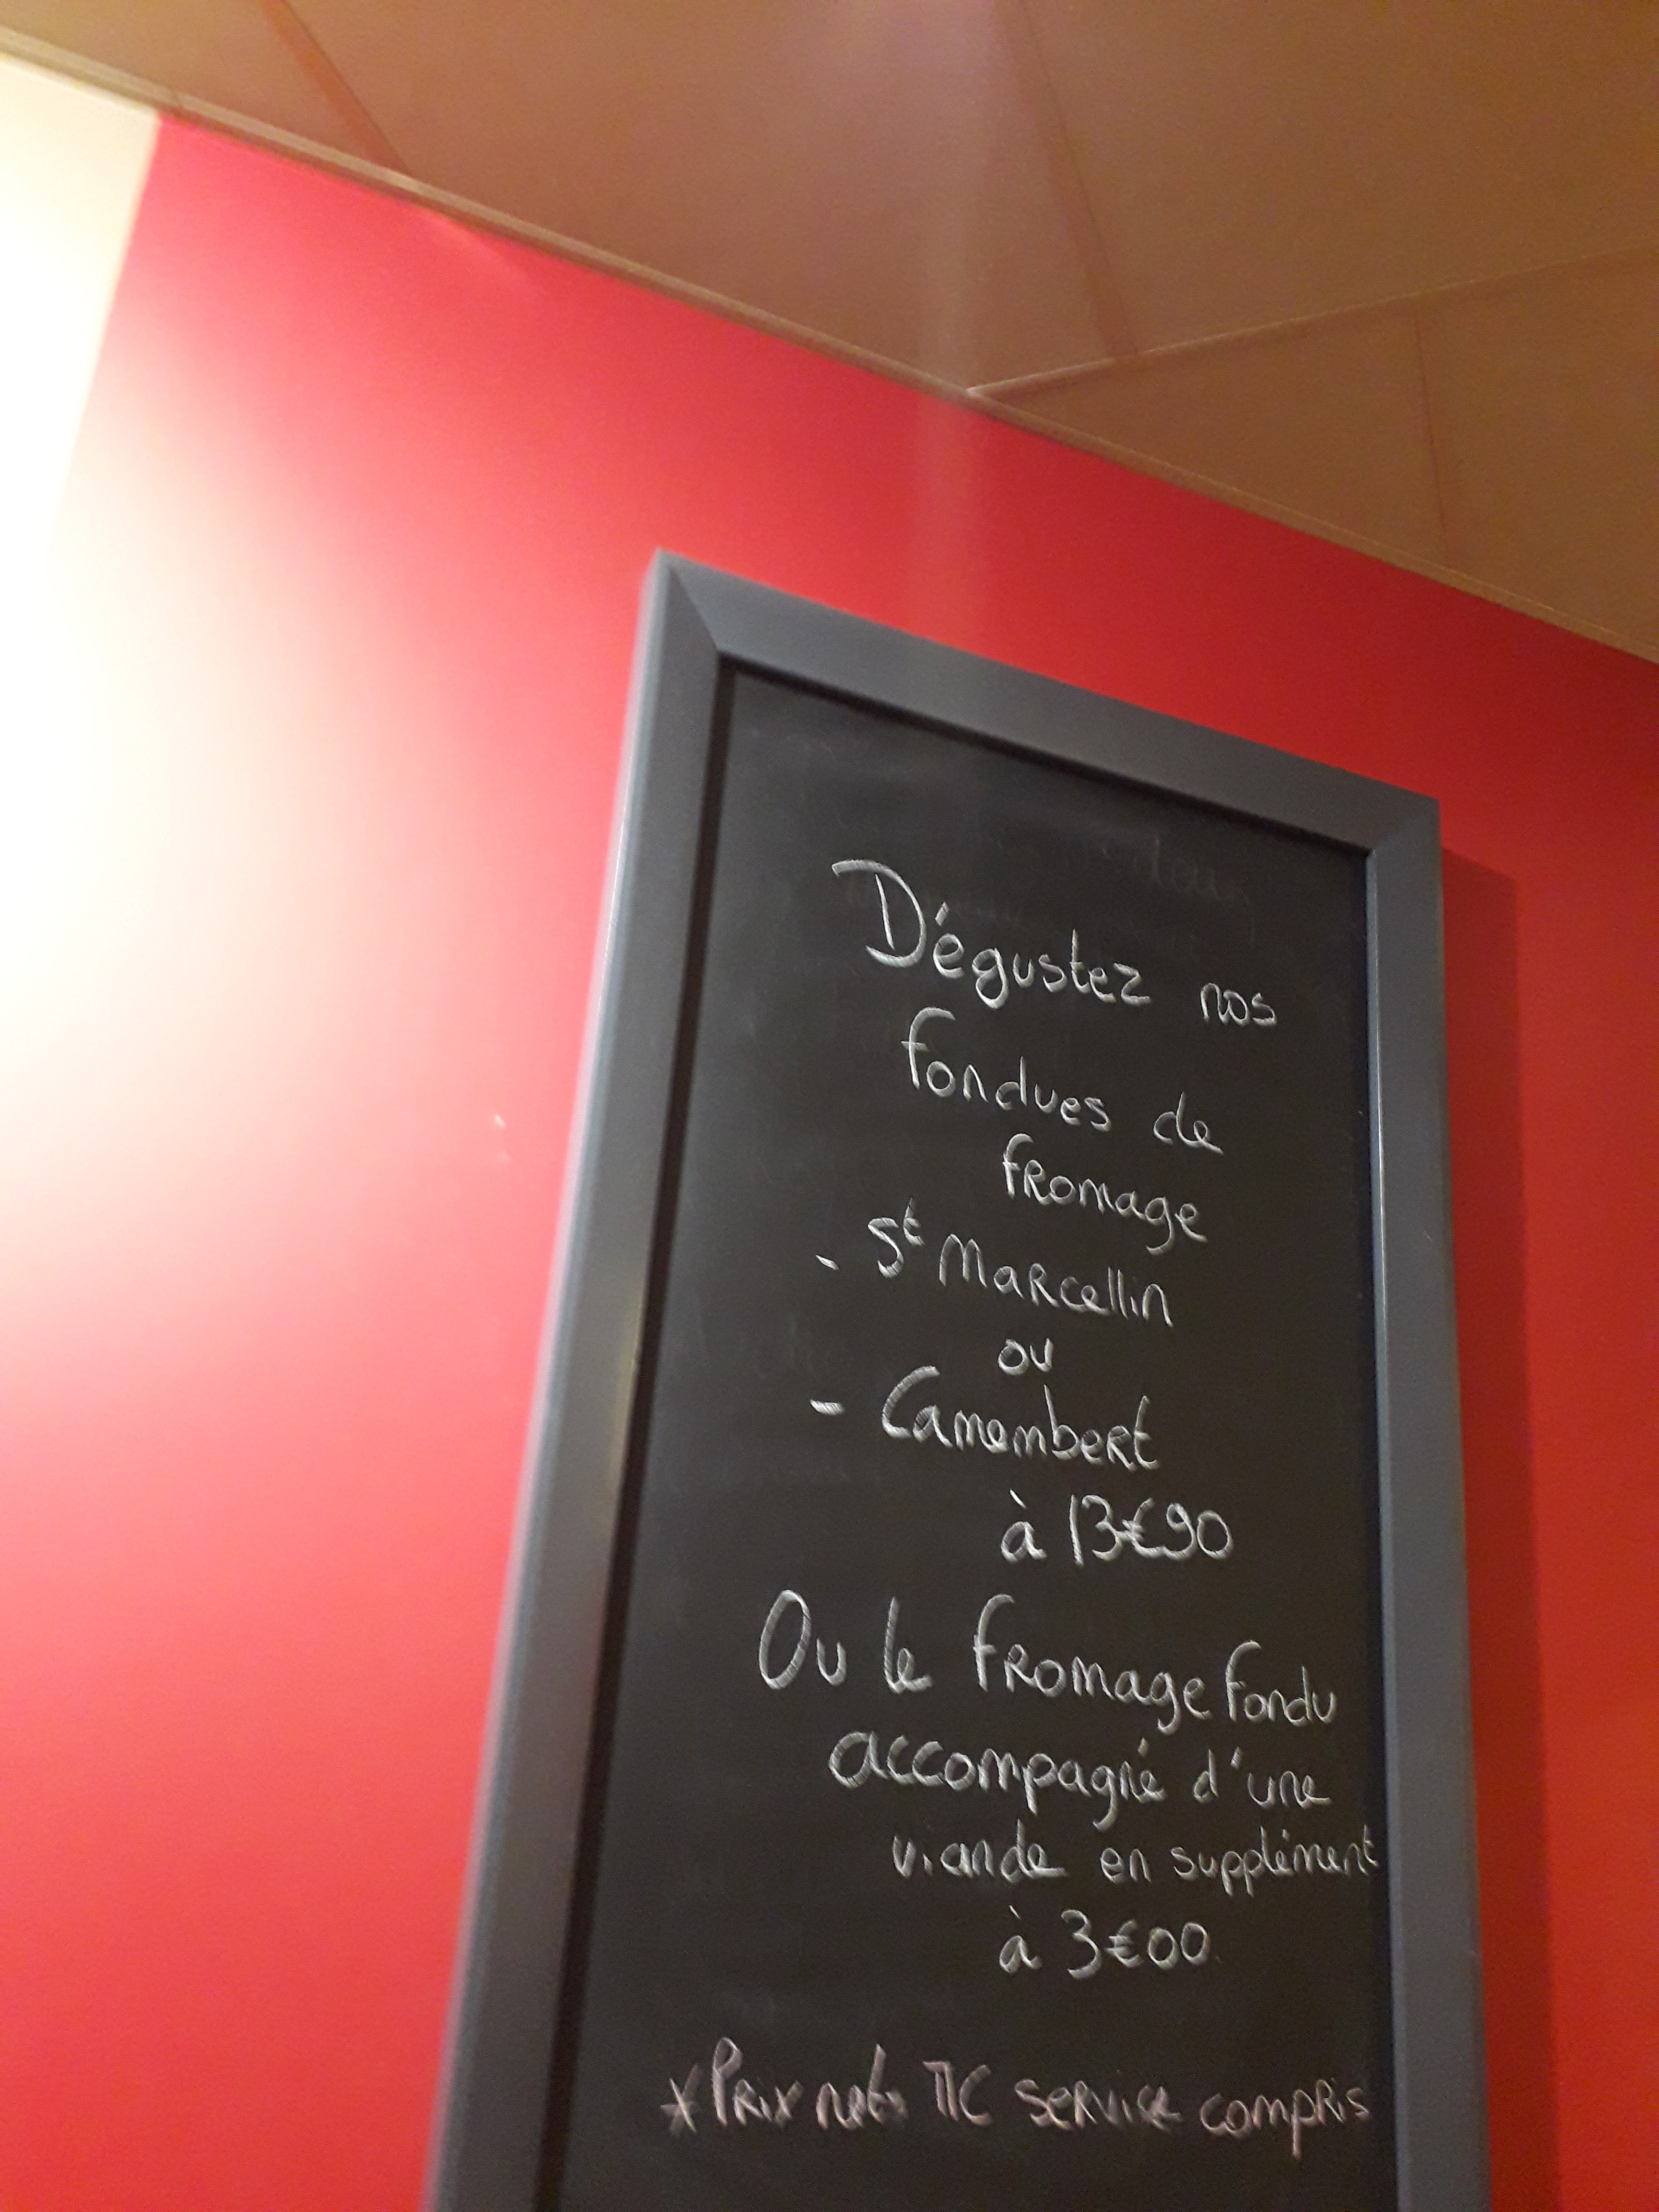 Dégustez nos
fondues de
fromage
- St Marcellin
ou
- Camembert
à 13€90
Ou le fromage fondu
accompagné d'une
viande en supplément
à 3€00
*Prix nets TTC service compris